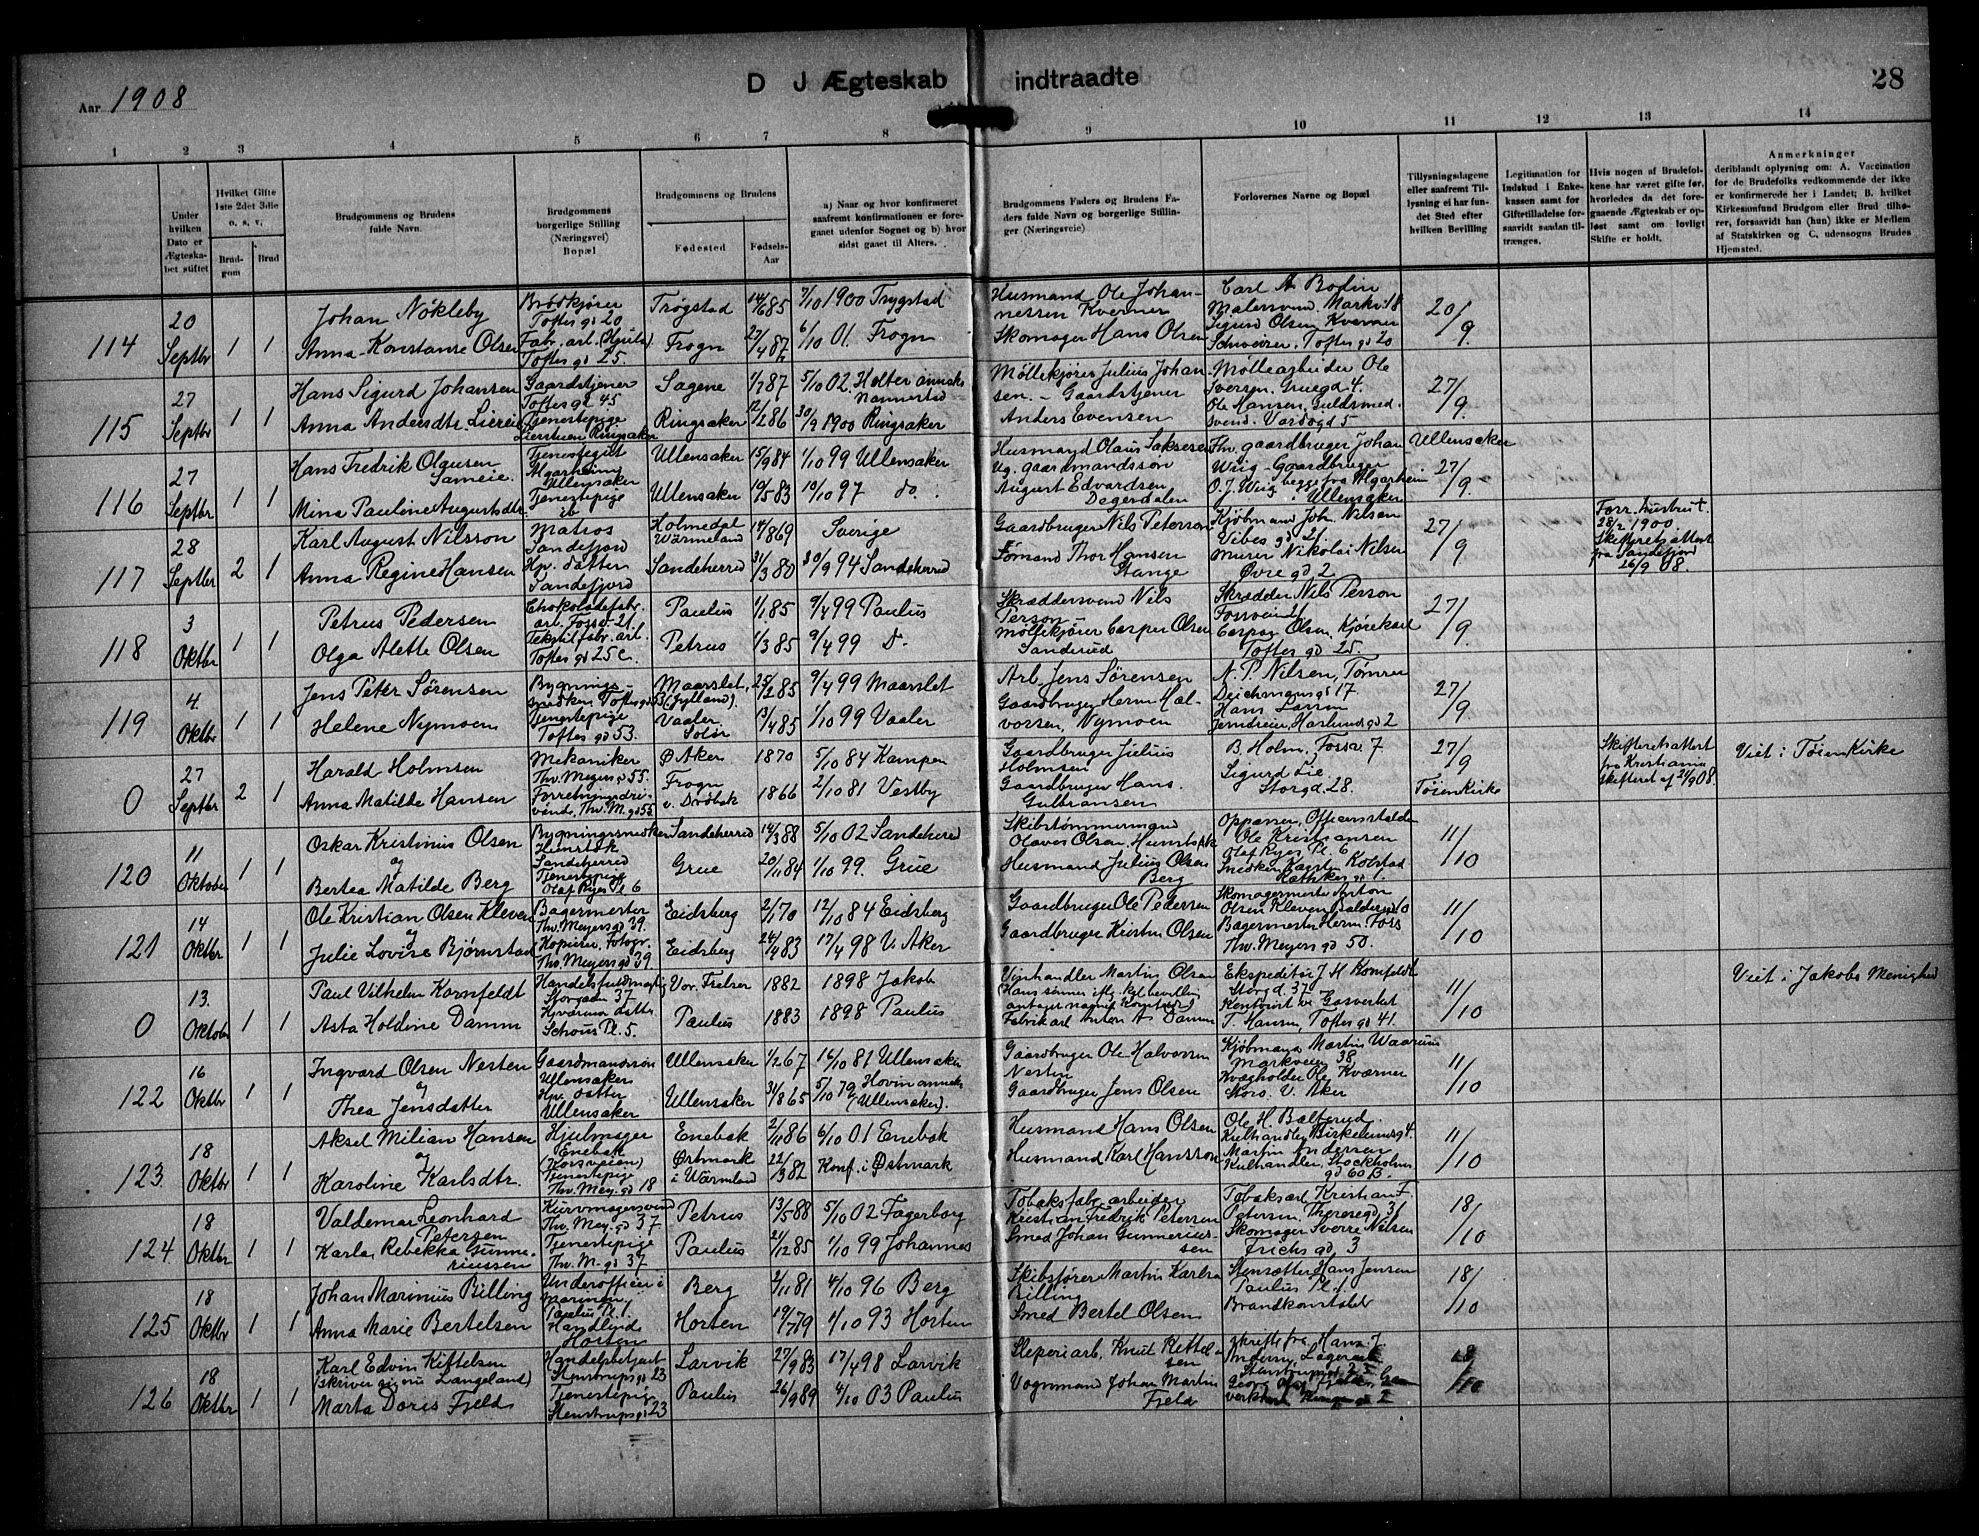 Aar 1908
D J Ægteskab indtraadte
28
1 2 3 4 5 6 7 8 9 10 11 12 13 14
Under hvilken Dato er Ægteskabet stiftet
Hvilket Gifte 1ste 2det 3die o. s. v.
Brudgom
Brud
Brudgommens og Brudens fulde Navn.
Brudgommens borgerlige Stilling (Næringsvei) Bopæl
Brudgommens og Brudens
Fødested
Fødsels-Aar
a) Naar og hvor konfirmeret saafremt konfirmationen er foregaaet udenfor Sognet og b) hvor sidst gaaet til Alters.
Brudgommens Faders og Brudens Faders fulde Navn og borgerlige Stillinger (Næringsveie)
Forlovernes Navne og Bopæl
Tillysningsdagene eller saafremt Tillysning ei har fundet Sted efter hvilken Bevilling
Legitimation for Indskud i Enkekassen samt for Giftertilladelse forsaavidt saadan tiltrænges.
Hvis nogen af Brudefolkene har været gifte før, hvorledes da det foregaaende Ægteskab er opløst samt om lovligt Skifte er holdt.
Anmerkninger
deriblandt oplysning om: A. Vaccination for de Brudefolks vedkommende der ikke er konfirmerede her i Landet; B. hvilket Kirkesamfund Brudgom eller Brud tilhører, forsaavidt han (hun) ikke er Medlem af Statskirken og C. udensogns Brudes Hjemsted.
114 20 Septbr 1 1
Johan Nökleby
Brödkjører Toftes gd 20
Trøgstad 14/6 85 7/10 1900 Trygstad
Husmand Ole Johannessen Kverner
Carl A Bodin Malersvend Markv. 18
20/9
Anna Konstanse Olsen
Toftes gd 25
Frogn 27/4 87 6/10 01. Frogn
Skomager Hans Olsen
Sigurd Olsen Kverner Toftes gd 20
115 27 Septbr 1 1
Hans Sigurd Johansen
Gaardstjener Toftes gd 45
Sagene 1/7 87 5/10 02. Holter Nannestad
Møllekjører Julius Johansen. - Gaardstjener
Møllearbeider Ole Iversen. Gruegd 4.
27/9.
Anna Andersdtr. Liereie
Tjenestepige Ringsaker
Ringsaker 12/2 86 30/9 1900 Ringsaker
Anders Evensen
Ole Hansen, Guldsmedsvend. Vardøgd 5
116 27 Septbr 1 1
Hans Fredrik Olausen Gameie.
Algarheim Ullensaker
Ullensaker 15/9 84 1/10 99 Ullensaker
Husmand Olaus Saksesen
gaardbruger Johan Wiig - Gaardbruger
Ullensaker 27/9.
Mina Pauline Augustsdtr
Tjenestepige
Ullensaker 19/5 83 10/10 97 do.
Ug. gaardmandssøn August Edvardsen Dagersdalen
O. J. Wiig begge fra Algarheim i Ullensaker
117 28 Septbr 2 1
Karl August Nilsson
Matros Sandefjord
Holmedal Wärmeland 14/8 69 Sverige
Gaardbruger Nils Peterson
Kjøbmand Joh. Nilsen Vibes gd 21
27/9
Forr. hustru † 28/2 1900. Skifteretsattest fra Sandefjord 26/9 08.
Anna Regine Hansen
Hp. datter Sandefjord
Sandeherred 31/3 80 30/9 94 Sandeherred
Formand Thor Hansen Stange
Murer Nikolai Nilsen Øvre gd 2
118 3 Oktbr 1 1
Petrus Pedersen
Chokoladefabr. arb. Fossv. 21.
Paulus 1/1 85 9/4 99 Paulus
Skræddersvend Nils Person
Skrædder Nils Person Fossveien 21
27/9
Olga Alette Olsen
Tekstilfabr. arb. Toftes gd 25 c.
Petrus 1/3 85 9/4 99 D.
Møllekjører Casper Olsen Sanderud
Caspar Olsen, Kjørekarl Toftes gd 25.
119 4 Oktbr 1 1
Jens Peter Sørensen
Bygningssnedker. Toftes gd 53
Maarslet, (Jylland). 25/2 85 9/4 99 Maarslet
Arb. Jens Sørensen
N. P. Nilsen, Tømrer Deichmans gd 17
27/9
Helene Nymoen
Tjenestepige Toftes gd 53.
Vaaler. Solør 13/4 85 1/10 99 Vaaler
Gaardbruger Herm Halvorsen, Nymoen
Hans Larsen
0 27 Septbr 2 1
Harald Holmsen
Mekaniker Thv. Meyers gd 55.
Ø Aker 1870 5/10 84 Kampen
Gaardbruger Julius Holmsen
B. Holm, Fossv. 7
27/9 Tøien Kirke
Skifteretsattest fra Kristiania skifteret af 21/9 08.
Viet i Tøien Kirke
Anna Matilde Hansen
Forretningsdrivende, Thv. M. gd 55
Frogn v. Drøbak 1866 2/10 81 Vestby
Gaardbruger Hans. Gulbransen
Sigurd Lie Storgd. 28.
120 11 Oktober 1 1
Oskar Kristinius Olsen og
Bygningssnedker Sandeherred
Sandeherred 14/3 88 5/10 02 Sandeherred
Skibstømmermand Olaves Olsen
Oppasser, Ole Kristiansen Olaf Ryes Pl. 6
11/10
Bertea Matilde Berg
Tjenestepige Olaf Ryes Pl 6
Grue 20/11 84 1/10 99. Grue
Husmand Julius Olsen Berg
121 14 Oktbr 1 1
Ole Kristian Olsen Kleven og
Bagermester Thv. Meyers gd 39.
Eidsberg 2/1 70 12/10 84 Eidsberg
Gaardbruger Ole Pedersen
Skomagermester Anton Olsen Kleven, Baldersgd 10
11/10
Julie Lovise Bjørnstad
Kopierer. Fotogr. Thv. Meyers gd 39
Eidsberg 24/4 83 17/4 98 V. Aker
Gaardbruger Kristen Olsen
Bagermester Herm. Foss Thv. Meyers gd 50.
0 13. Oktober 1 1
Paul Vilhelm Kornfeldt
Handelsfuldmægtig Storgaden 37
Vor. Frelser 1882 1898 Jakob
Vinhandler Martin Olsen (Hans sønner ifl. kgl. bevilling antager navnet Kornfeldt)
Ekspeditør J. H Kornfeldt Storgd. 37
11/10
Viet i Jakobs Menighed
Asta Holdine Damm
Hjværende datter Schous Pl. 5.
Paulus 1883 1898 Paulus
Fabrikarb Anton A Damm
Kontorist ve Gasverket T. Hansen, Toftes gd 41.
122 16 Oktbr 1 1
Ingvard Olsen Nesten og
Gaardmandssøn Ullensaker
Ullensaker 1/2 67 16/10 81 Ullensaker
Gaardbruger Ole Halvorsen Nesten
Kjøbmand Martin Waarum Markveien 38
11/10
Thea Jensdatter
Hp. datter Ullensaker
Ullensaker 31/8 65 5/10 79 Hovin anneks (Ullensaker).
Gaardbruger Jens Olsen
Kvægholder Ole Kværner Stors. V. Aker
123. 18 Oktbr 1 1
Aksel Milian Hansen og
Hjulmager Enebak (Korsveien)
Enebak 2/11 86 6/10 01 Enebak
Husmand Hans Olsen
Ole H. Balterud. Kulhandler Birkelunds g 4.
11/10
Karoline Karlsdtr.
Tjenestepig Thv. Mey. gd 18
Østmark i Wärmland 22/3 82 Konf. i Østmark
Husmand Karl Hansson
Martin Andersen Kulhandler, Stockholms gd 60 B.
124. 18 Oktbr 1 1
Valdemar Leonhard Petersen
Kurvmagersvend Thv. Mey. gd 37
Petrus 13/5 88 5/10 02 Fagerborg
Tobaksfabr. arbeider Kristian Fredrik Petersen
Tobaksarb Kristian F. Petersen, Theresegd 31
18/10
Karla Rebekka Gunneriussen
Tjenestepige Thv. M. gd 37
Paulus 21/12 85 1/10 99 Johannes
Smed Johan Gunneriussen
Skomager Sverre Nilsen Frichs gd 3
125 18 Oktbr 1 1
Johan Marinius Billing
Underofficer i Marinen, Paulus Pl. 1.
Berg 2/11 81 4/10 96 Berg
Skibsfører Martin Karlsen Billing
Stensætter Hans Jensen Paulus Pl. 1
18/10
Anna Marie Bertelsen
Handlende Horten
Horten 19/7 79 1/10 93 Horten
Smed Bertel Olsen
Brandkonstabel
126 18 Oktbr 1 1
Karl Edvin Kittelsen (skriver sig nu Langeland)
Handelsbetjent Stenstrups gd 23
Larvik 27/9 83 17/4 98 Larvik
Sleperiarb. Knut Kittelsen
18/10
Marta Doris Fjeld
Tjenestepige Stenstrups gd 23
Paulus 26/9 89 4/10 03 Paulus
Vognmand Johan Martin Fjeld